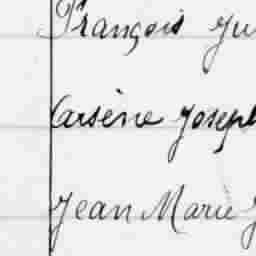 François
Arsène Joseph
Jean Marie